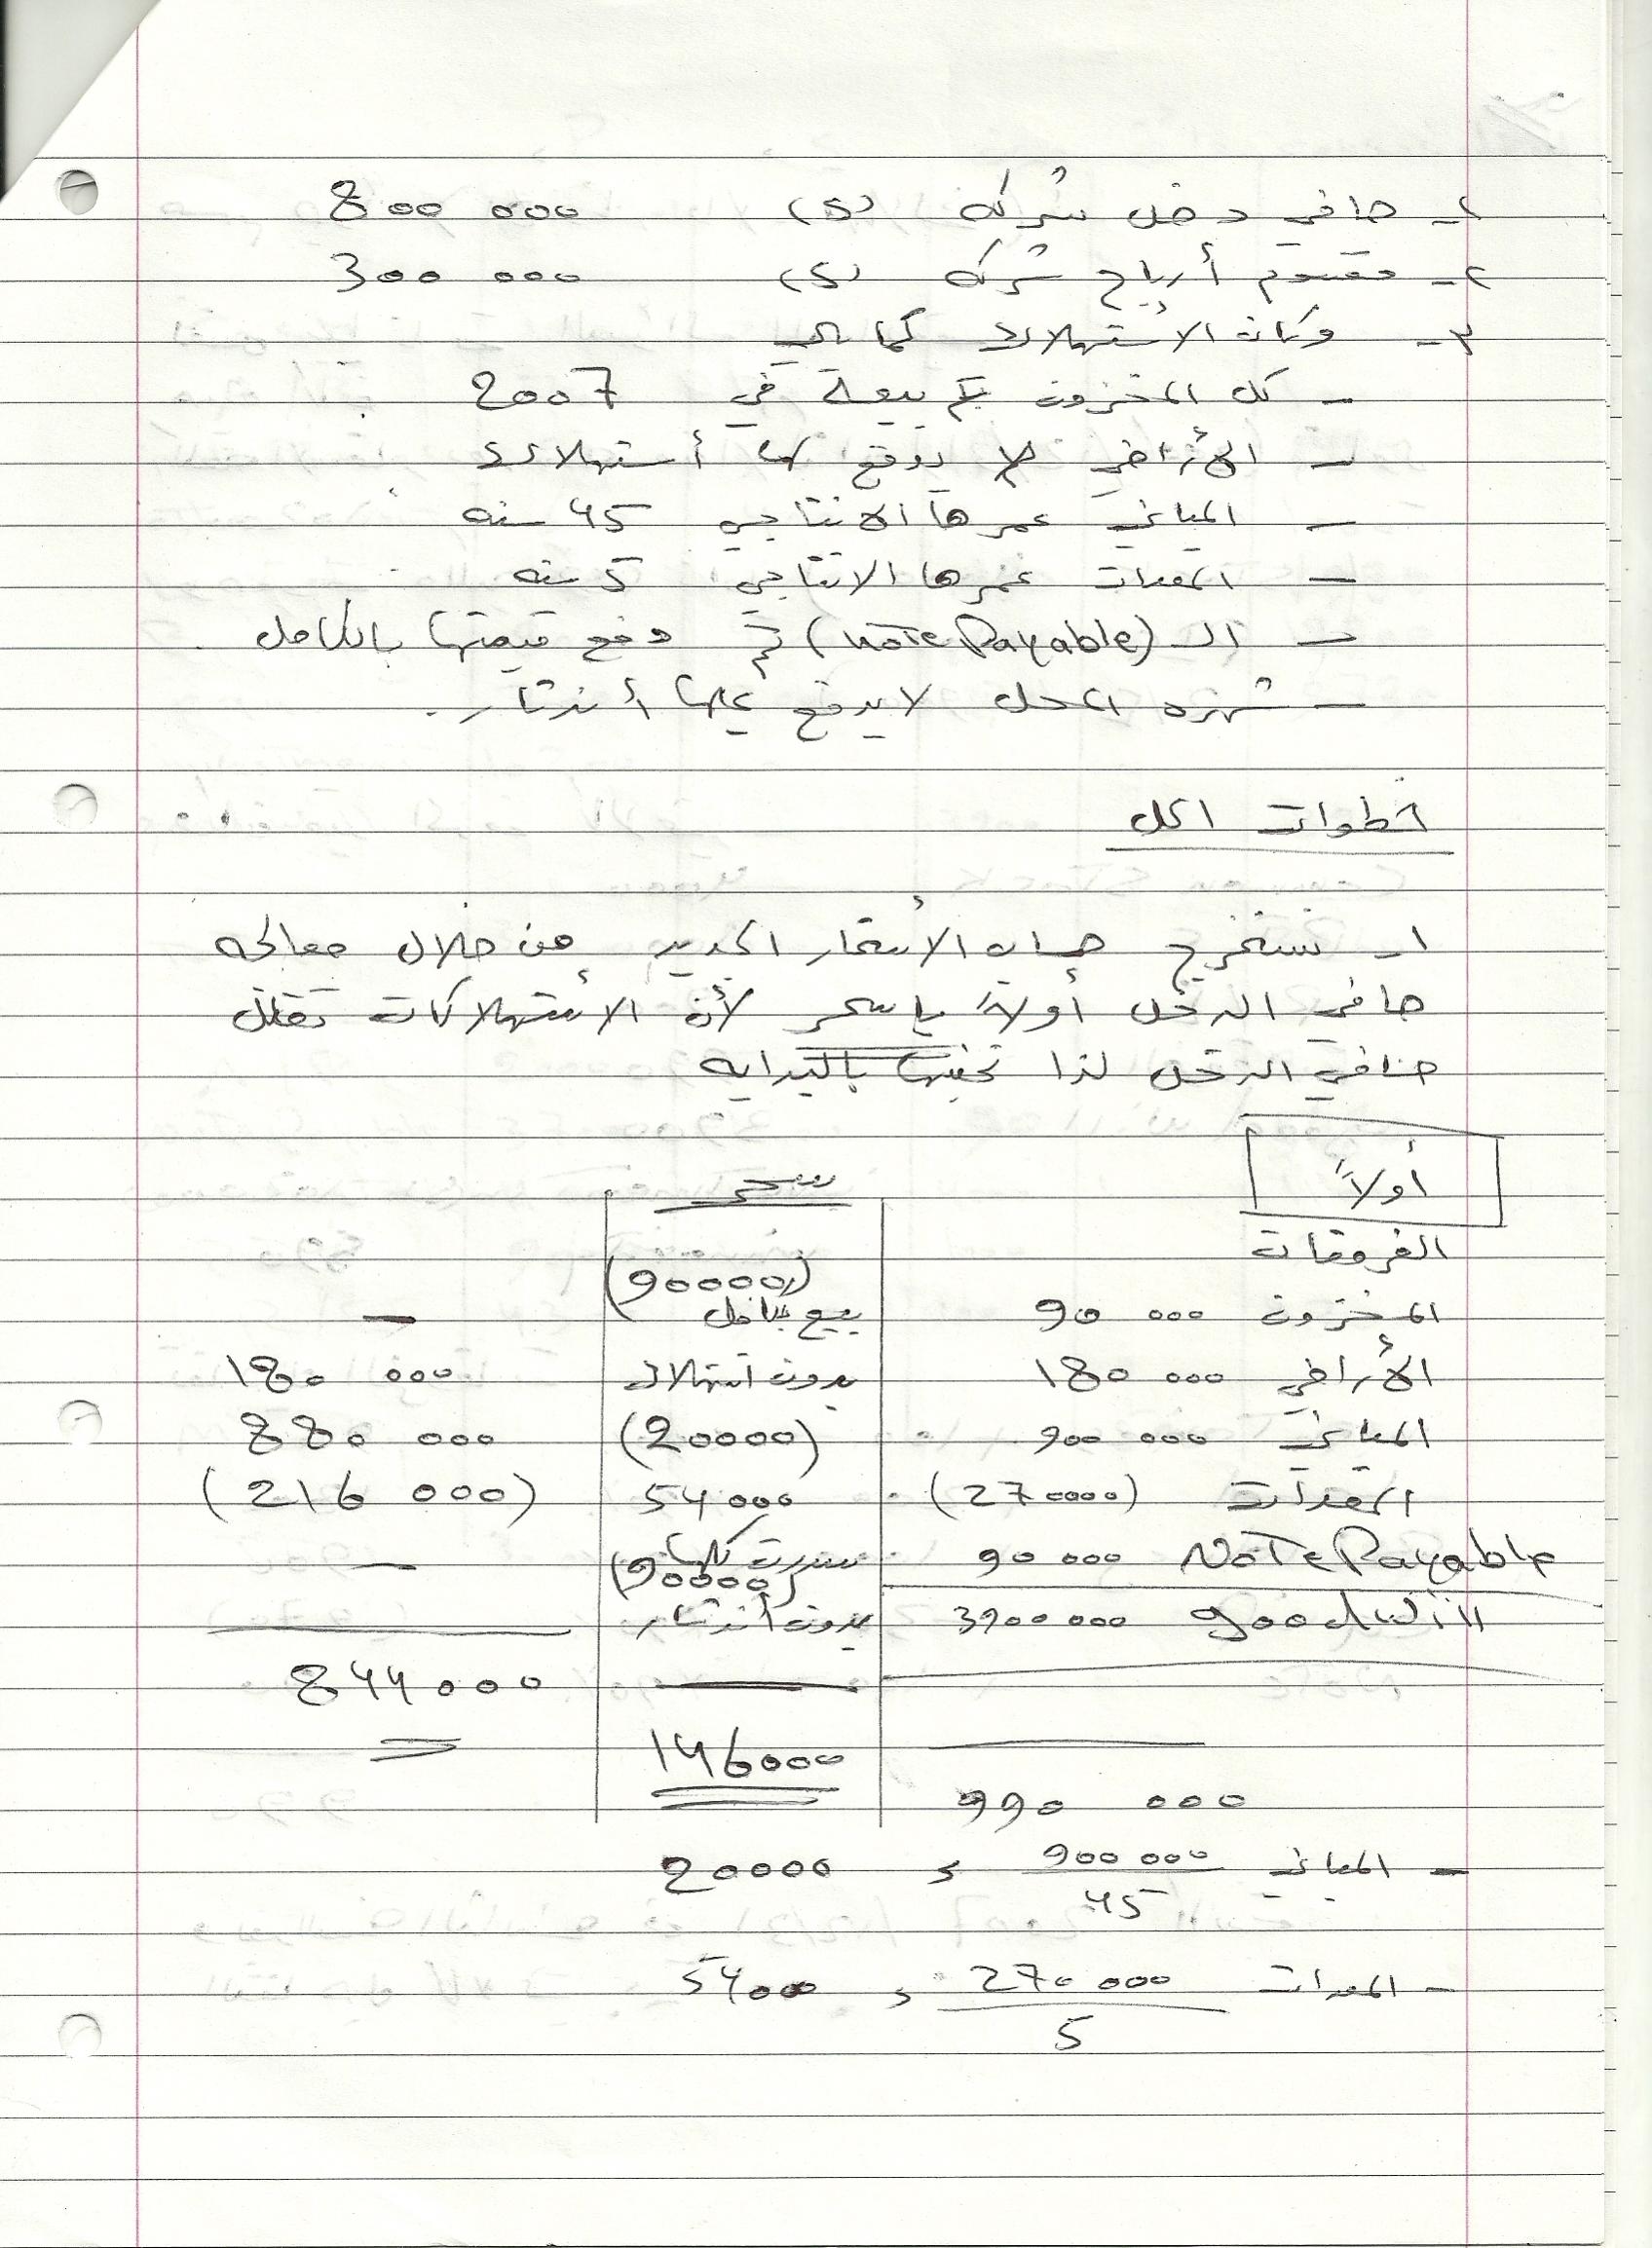 ٢- صافي دخل شركة (S) 800 000
٢- مقسوم أرباح شركة (S) 300 000
٣- وكان الاستهلاك كما يلي
- كل المخزون تم بيعه في 2007
- الأراضي لا يدفع لها أستهلاك
- المباني عمرها الانتاجي 45 سنه
- المعدات عمرها الانتاجي 5 سنه
- الـ (Note Payable) تم دفع قيمتها بالكامل
- شهره المحل لا يدفع عليها أندثار.
خطوات الحل
١- نستخرج حساب الأستثمار الجديد من خلال معالجه
صافي الدخل أولاً بأستمر لأن الاستهلاكات تقلل
صافي الدخل لذا نجيبها بالبدايه
أولاً
الفروقات
المخزون 90 000 (90000) بيع بالكامل —
الأراضي 180 000 بدون استهلاك 180 000
المباني 900 000 (20000) 880 000
المعدات (270000) 54000 (216 000)
Note Payable 90 000 سددت كلها (90000) —
goodwill 3900 000 بدون أندثار
844000
146000
990 000
- المباني 900 000 / 45 = 20000
- المعدات 270 000 / 5 = 54000